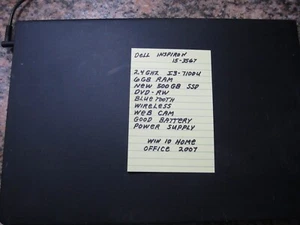 DELL INSPIRON
15-3567
2.4 GHZ I3-7100U
6GB RAM
NEW 500GB SSD
DVD-RW
BLUETOOTH
WIRELESS
WEB CAM
GOOD BATTERY
POWER SUPPLY
WIN 10 HOME
OFFICE 2007